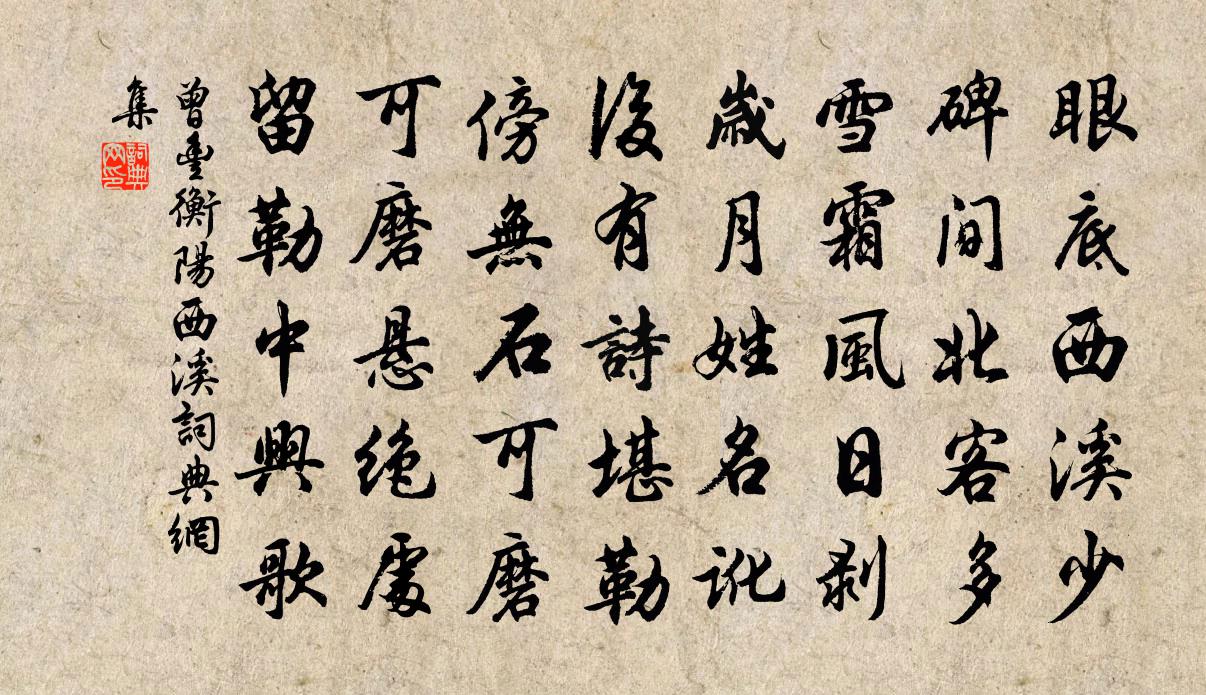 眼底西溪少
碑間北客多
雪霜風日剥
歲月姓名訛
後有詩堪勒
傍無石可磨
可磨懸絶處
留勒中興歌
曾豐衡陽西溪詞典網
集
詞典
网印